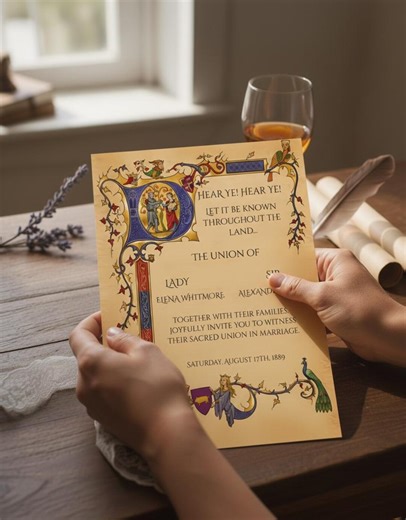 HEAR YE! HEAR YE!
LET IT BE KNOWN
THROUGHOUT THE
LAND...
THE UNION OF
LADY SIR
ELENA WHITMORE
TOGETHER WITH THEIR FAMILIES
JOYFULLY INVITE YOU TO WITNESS
THEIR SACRED UNION IN MARRIAGE
SATURDAY, AUGUST 17TH, 1889